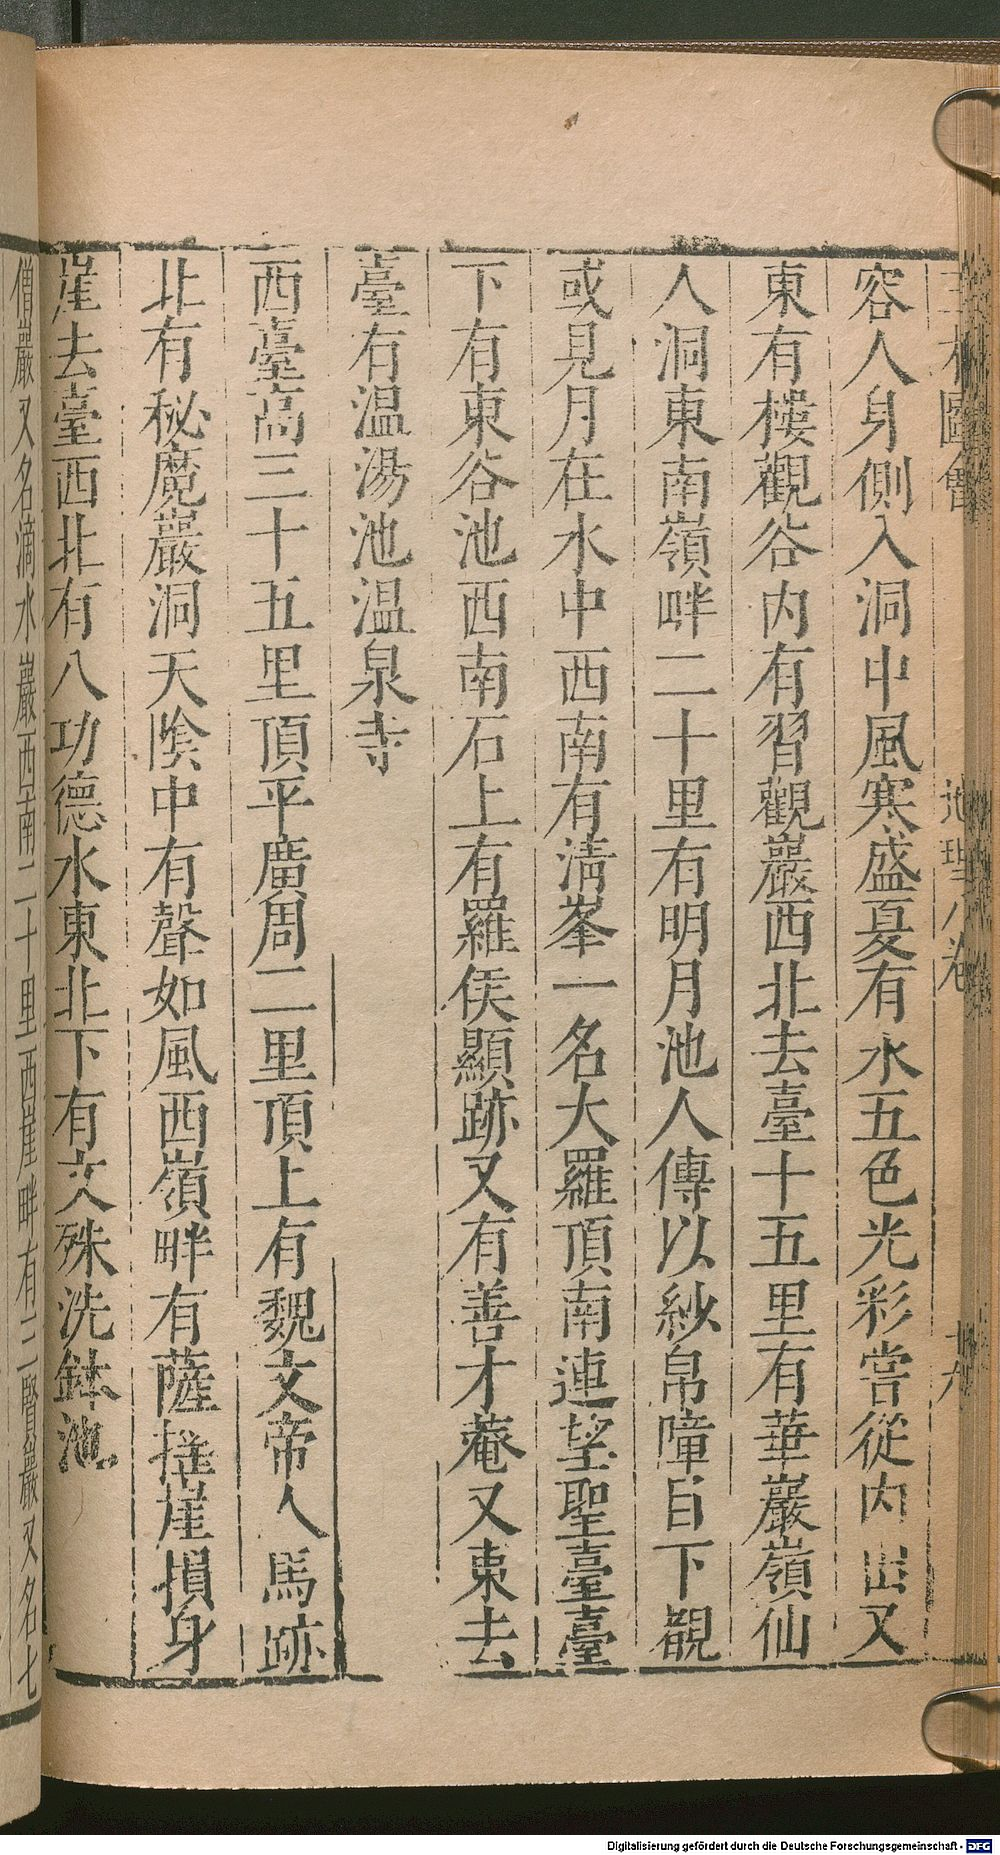 三才圖會 地理八卷
容人身側入洞中風寒盛夏有水五色光彩嘗從內出又
東有樓觀谷內有習觀巖西北去臺十五里有華嚴嶺仙
人洞東南嶺畔二十里有明月池人傳以紗帛障目下觀
或見月在水中西南有清峯一名大羅頂南連望聖臺臺
下有東谷池西南石上有羅侯顯跡又有善才菴又東去
臺有温湯池温泉寺
西臺高三十五里頂平廣周二里頂上有魏文帝人馬跡
北有秘魔巖洞天陰中有聲如風西嶺畔有薩捶崖損身
崖去臺西北有八功德水東北下有文殊洗鉢池
僧巖又名滴水巖西南二十里西崖畔有三賢巖又名七
Digitalisierung gefördert durch die Deutsche Forschungsgemeinschaft - DFG